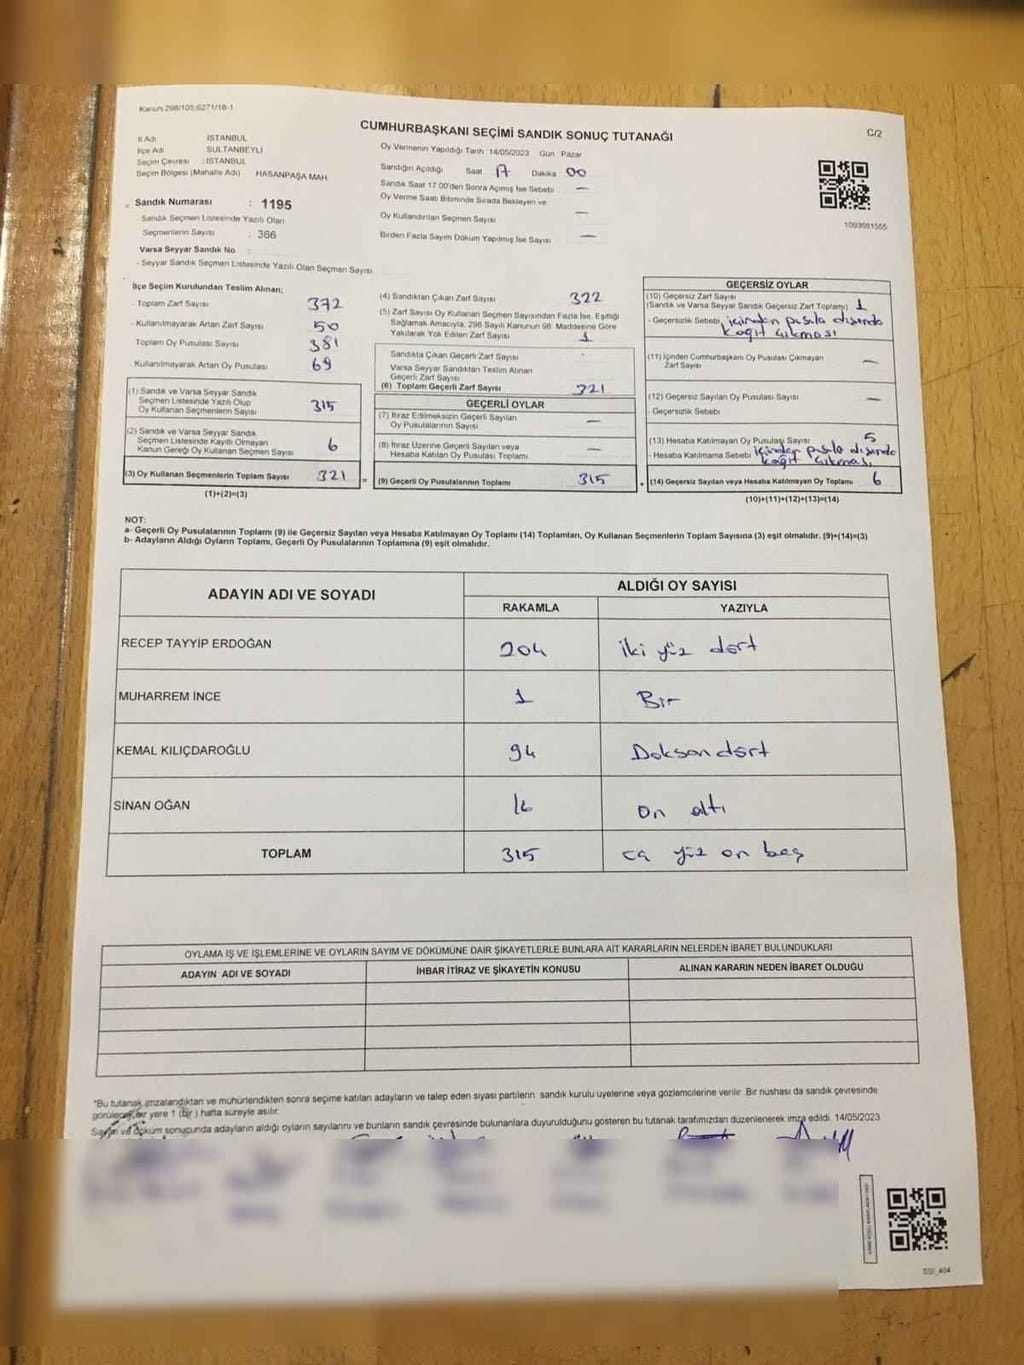 Kanun 298/105.6271/18-1
CUMHURBAŞKANI SEÇİMİ SANDIK SONUÇ TUTANAĞI
C/2
İl Adı İSTANBUL
İlçe Adı SULTANBEYLİ
Seçim Çevresi : İSTANBUL
Seçim Bölgesi (Mahalle Adı) HASANPAŞA MAH.
Sandık Numarası : 1195
- Sandık Seçmen Listesinde Yazılı Olan
Seçmenlerin Sayısı : 366
Varsa Seyyar Sandık No :
- Seyyar Sandık Seçmen Listesinde Yazılı Olan Seçmen Sayısı
Oy Vermenin Yapıldığı Tarih 14/05/2023 Gün Pazar
Sandığın Açıldığı Saat 17 Dakika 00
Sandık Saat 17.00'den Sonra Açmış İse Sebebi —
Oy Verme Saati Bitiminde Sırada Bekleyen ve
Oy Kullandırılan Seçmen Sayısı —
Birden Fazla Sayım Döküm Yapılmış İse Sayısı —
1093681565
İlçe Seçim Kurulundan Teslim Alınan;
- Toplam Zarf Sayısı 372
- Kullanılmayarak Artan Zarf Sayısı 50
Toplam Oy Pusulası Sayısı 381
- Kullanılmayarak Artan Oy Pusulası 69
(1) Sandık ve Varsa Seyyar Sandık
Seçmen Listesinde Yazılı Olup
Oy Kullanan Seçmenlerin Sayısı 315
(2) Sandık ve Varsa Seyyar Sandık
Seçmen Listesinde Kayıtlı Olmayan
Kanun Gereği Oy Kullanan Seçmen Sayısı 6
(3) Oy Kullanan Seçmenlerin Toplam Sayısı 321 =
(1)+(2)=(3)
(4) Sandıktan Çıkan Zarf Sayısı 322
(5) Zarf Sayısı Oy Kullanan Seçmen Sayısından Fazla İse, Eşitliği
Sağlamak Amacıyla, 298 Sayılı Kanunun 98. Maddesine Göre
Yakılarak Yok Edilen Zarf Sayısı 1
Sandıkta Çıkan Geçerli Zarf Sayısı
Varsa Seyyar Sandıktan Teslim Alınan
Geçerli Zarf Sayısı
(6) Toplam Geçerli Zarf Sayısı 321
GEÇERLİ OYLAR
(7) İtiraz Edilmeksizin Geçerli Sayılan
Oy Pusulalarının Sayısı —
(8) İtiraz Üzerine Geçerli Sayılan veya
Hesaba Katılan Oy Pusulası Toplamı —
(9) Geçerli Oy Pusulalarının Toplamı 315
GEÇERSİZ OYLAR
(10) Geçersiz Zarf Sayısı
(Sandık ve Varsa Seyyar Sandık Geçersiz Zarf Toplamı) 1
- Geçersizlik Sebebi içinden pusula dışında
kağıt çıkması
(11) İçinden Cumhurbaşkanı Oy Pusulası Çıkmayan
Zarf Sayısı —
(12) Geçersiz Sayılan Oy Pusulası Sayısı —
- Geçersizlik Sebebi
(13) Hesaba Katılmayan Oy Pusulası Sayısı 5
- Hesaba Katılmama Sebebi içinden pusula dışında
kağıt çıkması
(14) Geçersiz Sayılan veya Hesaba Katılmayan Oy Toplamı 6
(10)+(11)+(12)+(13)=(14)
NOT:
a- Geçerli Oy Pusulalarının Toplamı (9) ile Geçersiz Sayılan veya Hesaba Katılmayan Oy Toplamı (14) Toplamları, Oy Kullanan Seçmenlerin Toplam Sayısına (3) eşit olmalıdır. (9)+(14)=(3)
b- Adayların Aldığı Oyların Toplamı, Geçerli Oy Pusulalarının Toplamına (9) eşit olmalıdır.
ADAYIN ADI VE SOYADI
ALDIĞI OY SAYISI
RAKAMLA YAZIYLA
RECEP TAYYİP ERDOĞAN 204 iki yüz dört
MUHARREM İNCE 1 Bir
KEMAL KILIÇDAROĞLU 94 Doksan dört
SİNAN OĞAN 16 on altı
TOPLAM 315 yüz on beş
OYLAMA İŞ VE İŞLEMLERİNE VE OYLARIN SAYIM VE DÖKÜMÜNE DAİR ŞİKAYETLERLE BUNLARA AİT KARARLARIN NELERDEN İBARET BULUNDUKLARI
ADAYIN ADI VE SOYADI İHBAR İTİRAZ VE ŞİKAYETİN KONUSU ALINAN KARARIN NEDEN İBARET OLDUĞU
"Bu tutanak imzalandıktan ve mühürlendikten sonra seçime katılan adayların ve talep eden siyasi partilerin sandık kurulu üyelerine veya gözlemcilerine verilir. Bir nüshası da sandık çevresinde
görülecek bir yere 1 (bir) hafta süreyle asılır.
Sayım ve döküm sonucunda adayların aldığı oyların sayılarını ve bunların sandık çevresinde bulunanlara duyurulduğunu gösteren bu tutanak tarafımızdan düzenlenerek imza edildi. 14/05/2023
SSI_464